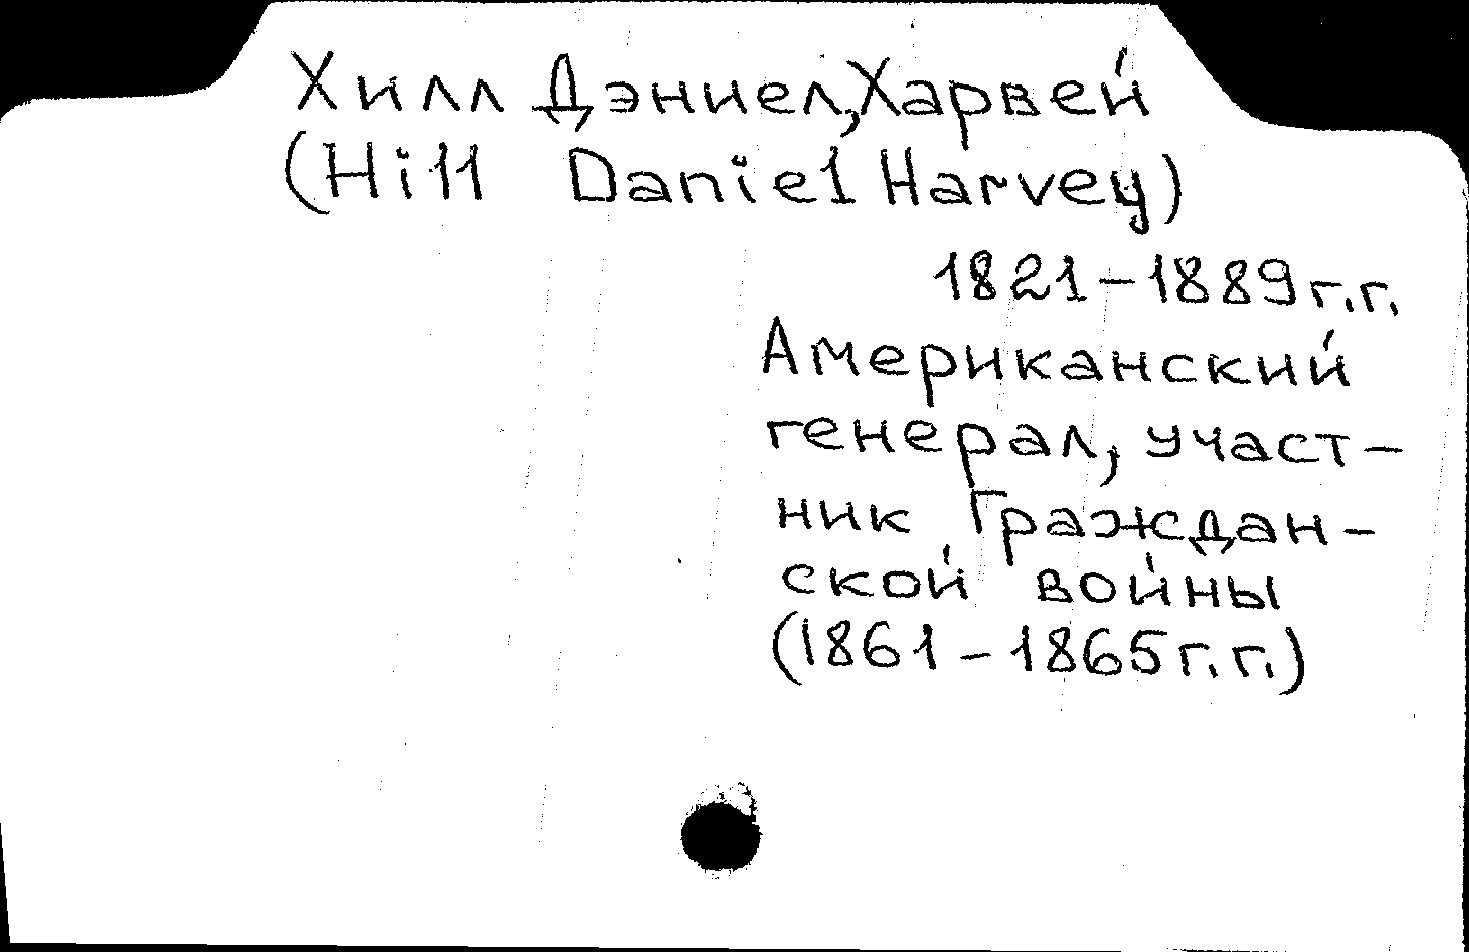 Хилл Дэниел, Харвей
(Hill Daniel Harvey)
1821-1889 г.г.
Американский
генерал, участ-
ник Граждан-
ской войны
(1861-1865 г.г.)